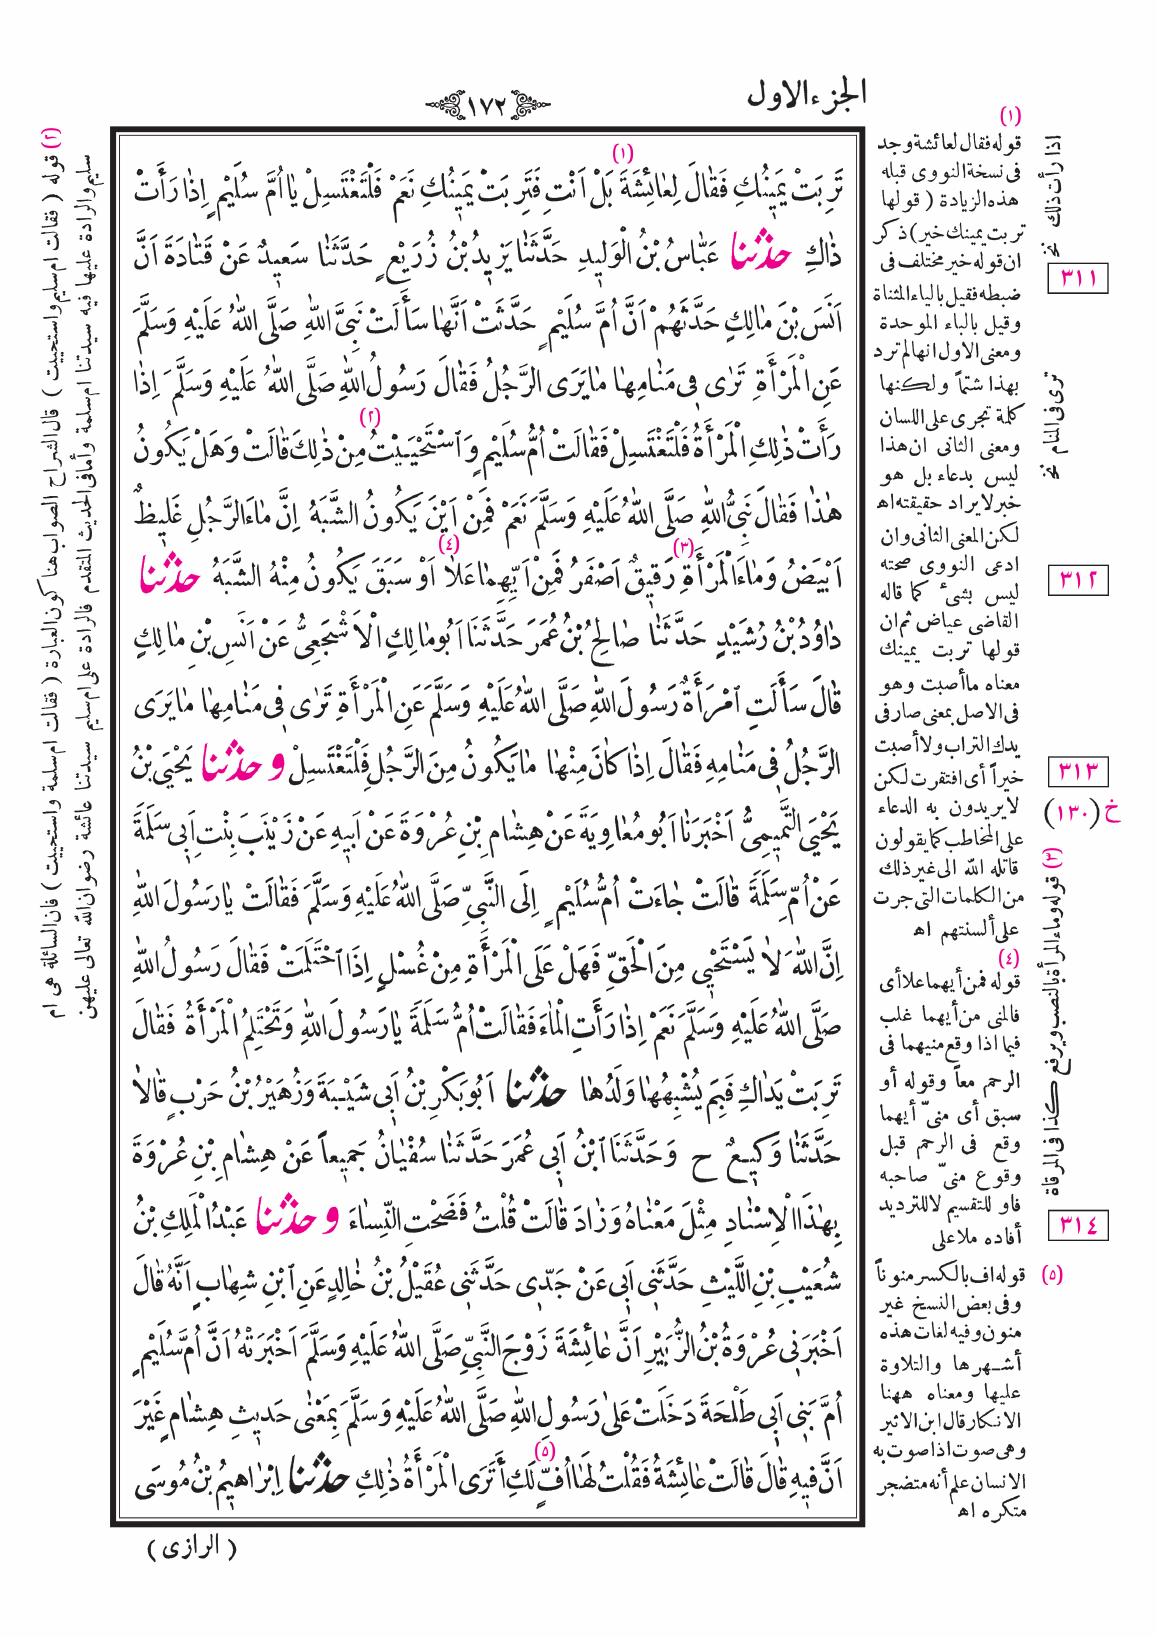 الجزء الاول
١٧٢
(١)
تَرِبَتْ يَمِينُكِ فَقَالَ لِعَائِشَةَ بَلْ اَنْتِ فَتَرِبَتْ يَمِينُكِ نَعَمْ فَلْتَغْتَسِلْ يَا اُمَّ سُلَيْمٍ اِذَا رَأَتْ
ذَاكِ حدثنا عَبَّاسُ بْنُ الْوَلِيدِ حَدَّثَنَا يَزِيدُ بْنُ زُرَيْعٍ حَدَّثَنَا سَعِيدٌ عَنْ قَتَادَةَ اَنَّ
اَنَسَ بْنَ مَالِكٍ حَدَّثَهُمْ اَنَّ اُمَّ سُلَيْمٍ حَدَّثَتْ اَنَّهَا سَأَلَتْ نَبِىَّ اللهِ صَلَّى اللهُ عَلَيْهِ وَسَلَّمَ
عَنِ الْمَرْأَةِ تَرٰى فِى مَنَامِهَا مَا يَرَى الرَّجُلُ فَقَالَ رَسُولُ اللهِ صَلَّى اللهُ عَلَيْهِ وَسَلَّمَ اِذَا
(٢)
رَأَتْ ذٰلِكِ الْمَرْأَةُ فَلْتَغْتَسِلْ فَقَالَتْ اُمُّ سُلَيْمٍ وَاسْتَحْيَيْتُ مِنْ ذٰلِكَ قَالَتْ وَهَلْ يَكُونُ
هٰذَا فَقَالَ نَبِىُّ اللهِ صَلَّى اللهُ عَلَيْهِ وَسَلَّمَ نَعَمْ فَمِنْ اَيْنَ يَكُونُ الشَّبَهُ اِنَّ مَاءَ الرَّجُلِ غَلِيظٌ
(٣) (٤)
اَبْيَضُ وَمَاءَ الْمَرْأَةِ رَقِيقٌ اَصْفَرُ فَمِنْ اَيِّهِمَا عَلَا اَوْ سَبَقَ يَكُونُ مِنْهُ الشَّبَهُ حدثنا
دَاوُدُ بْنُ رُشَيْدٍ حَدَّثَنَا صَالِحُ بْنُ عُمَرَ حَدَّثَنَا اَبُو مَالِكٍ الْاَشْجَعِىُّ عَنْ اَنَسِ بْنِ مَالِكٍ
قَالَ سَأَلَتِ امْرَأَةٌ رَسُولَ اللهِ صَلَّى اللهُ عَلَيْهِ وَسَلَّمَ عَنِ الْمَرْأَةِ تَرٰى فِى مَنَامِهَا مَا يَرَى
الرَّجُلُ فِى مَنَامِهِ فَقَالَ اِذَا كَانَ مِنْهَا مَا يَكُونُ مِنَ الرَّجُلِ فَلْتَغْتَسِلْ و حدثنا يَحْيَى بْنُ
يَحْيَى التَّمِيمِىُّ اَخْبَرَنَا اَبُو مُعَاوِيَةَ عَنْ هِشَامِ بْنِ عُرْوَةَ عَنْ اَبِيهِ عَنْ زَيْنَبَ بِنْتِ اَبِى سَلَمَةَ
عَنْ اُمِّ سَلَمَةَ قَالَتْ جَاءَتْ اُمُّ سُلَيْمٍ اِلَى النَّبِىِّ صَلَّى اللهُ عَلَيْهِ وَسَلَّمَ فَقَالَتْ يَا رَسُولَ اللهِ
اِنَّ اللهَ لَا يَسْتَحْيِى مِنَ الْحَقِّ فَهَلْ عَلَى الْمَرْأَةِ مِنْ غُسْلٍ اِذَا احْتَلَمَتْ فَقَالَ رَسُولُ اللهِ
صَلَّى اللهُ عَلَيْهِ وَسَلَّمَ نَعَمْ اِذَا رَأَتِ الْمَاءَ فَقَالَتْ اُمُّ سَلَمَةَ يَا رَسُولَ اللهِ وَتَحْتَلِمُ الْمَرْأَةُ فَقَالَ
تَرِبَتْ يَدَاكِ فَبِمَ يُشْبِهُهَا وَلَدُهَا حدثنا اَبُو بَكْرِ بْنُ اَبِى شَيْبَةَ وَزُهَيْرُ بْنُ حَرْبٍ قَالَا
حَدَّثَنَا وَكِيعٌ ح وَحَدَّثَنَا ابْنُ اَبِى عُمَرَ حَدَّثَنَا سُفْيَانُ جَمِيعاً عَنْ هِشَامِ بْنِ عُرْوَةَ
بِهٰذَا الْاِسْنَادِ مِثْلَ مَعْنَاهُ وَزَادَ قَالَتْ قُلْتُ فَضَحْتِ النِّسَاءَ و حدثنا عَبْدُ الْمَلِكِ بْنُ
شُعَيْبِ بْنِ اللَّيْثِ حَدَّثَنِى اَبِى عَنْ جَدِّى حَدَّثَنِى عُقَيْلُ بْنُ خَالِدٍ عَنِ ابْنِ شِهَابٍ اَنَّهُ قَالَ
اَخْبَرَنِى عُرْوَةُ بْنُ الزُّبَيْرِ اَنَّ عَائِشَةَ زَوْجَ النَّبِىِّ صَلَّى اللهُ عَلَيْهِ وَسَلَّمَ اَخْبَرَتْهُ اَنَّ اُمَّ سُلَيْمٍ
اُمَّ بَنِى اَبِى طَلْحَةَ دَخَلَتْ عَلٰى رَسُولِ اللهِ صَلَّى اللهُ عَلَيْهِ وَسَلَّمَ بِمَعْنٰى حَدِيثِ هِشَامٍ غَيْرَ
(٥)
اَنَّ فِيهِ قَالَ قَالَتْ عَائِشَةُ فَقُلْتُ لَهَا اُفٍّ لَكِ أَتَرَى الْمَرْأَةُ ذٰلِكِ حدثنا اِبْرَاهِيمُ بْنُ مُوسَى
( الرازى )
(١)
قوله فقال لعائشة وجد
فى نسخة النووى قبله
هذه الزيادة ( قولها
تربت يمينك خير) ذكر
ان قوله خير مختلف فى
ضبطه فقيل بالياء المثناة
وقيل بالباء الموحدة
ومعنى الاول انها لم ترد
بهذا شتماً ولكنها
كلمة تجرى على اللسان
ومعنى الثانى ان هذا
ليس بدعاء بل هو
خبر لا يراد حقيقته اه
لكن المعنى الثانى وان
ادعى النووى صحته
ليس بشىء كما قاله
القاضى عياض ثم ان
قولها تربت يمينك
معناه ما أصبت وهو
فى الاصل بمعنى صار فى
يدك التراب ولا أصبت
خيراً أى افتقرت لكن
لا يريدون به الدعاء
على المخاطب كما يقولون
قاتله الله الى غير ذلك
من الكلمات التى جرت
على ألسنتهم اه
(٤)
قوله فمن أيهما علا أى
فالمنى من أيهما غلب
فيما اذا وقع منيهما فى
الرحم معاً وقوله أو
سبق أى منىّ أيهما
وقع فى الرحم قبل
وقوع منىّ صاحبه
فاو للتقسيم لا للترديد
أفاده ملا على
(٥) قوله اف بالكسر منوناً
وفى بعض النسخ غير
منون وفيه لغات هذه
أشهرها والتلاوة
عليها ومعناه ههنا
الانكار قال ابن الاثير
وهى صوت اذا صوت به
الانسان علم أنه متضجر
متكره اه
اذا رأت ذلك نخ
٣١١
ترى فى المنام نخ
٣١٢
٣١٣
خ (١٣٠)
(٣) قوله وماء المرأة بالنصب ويرفع كذا فى المرقاة
٣١٤
(٢) قوله ( فقالت ام سليم واستحييت ) قال الشراح الصواب هنا كون العبارة ( فقالت ام سلمة واستحييت ) فان السائلة هى ام
سليم والرادة عليها فيه سيدتنا ام سلمة وأما فى الحديث المتقدم فالرادة على ام سليم سيدتنا عائشة رضوان الله تعالى عليهن